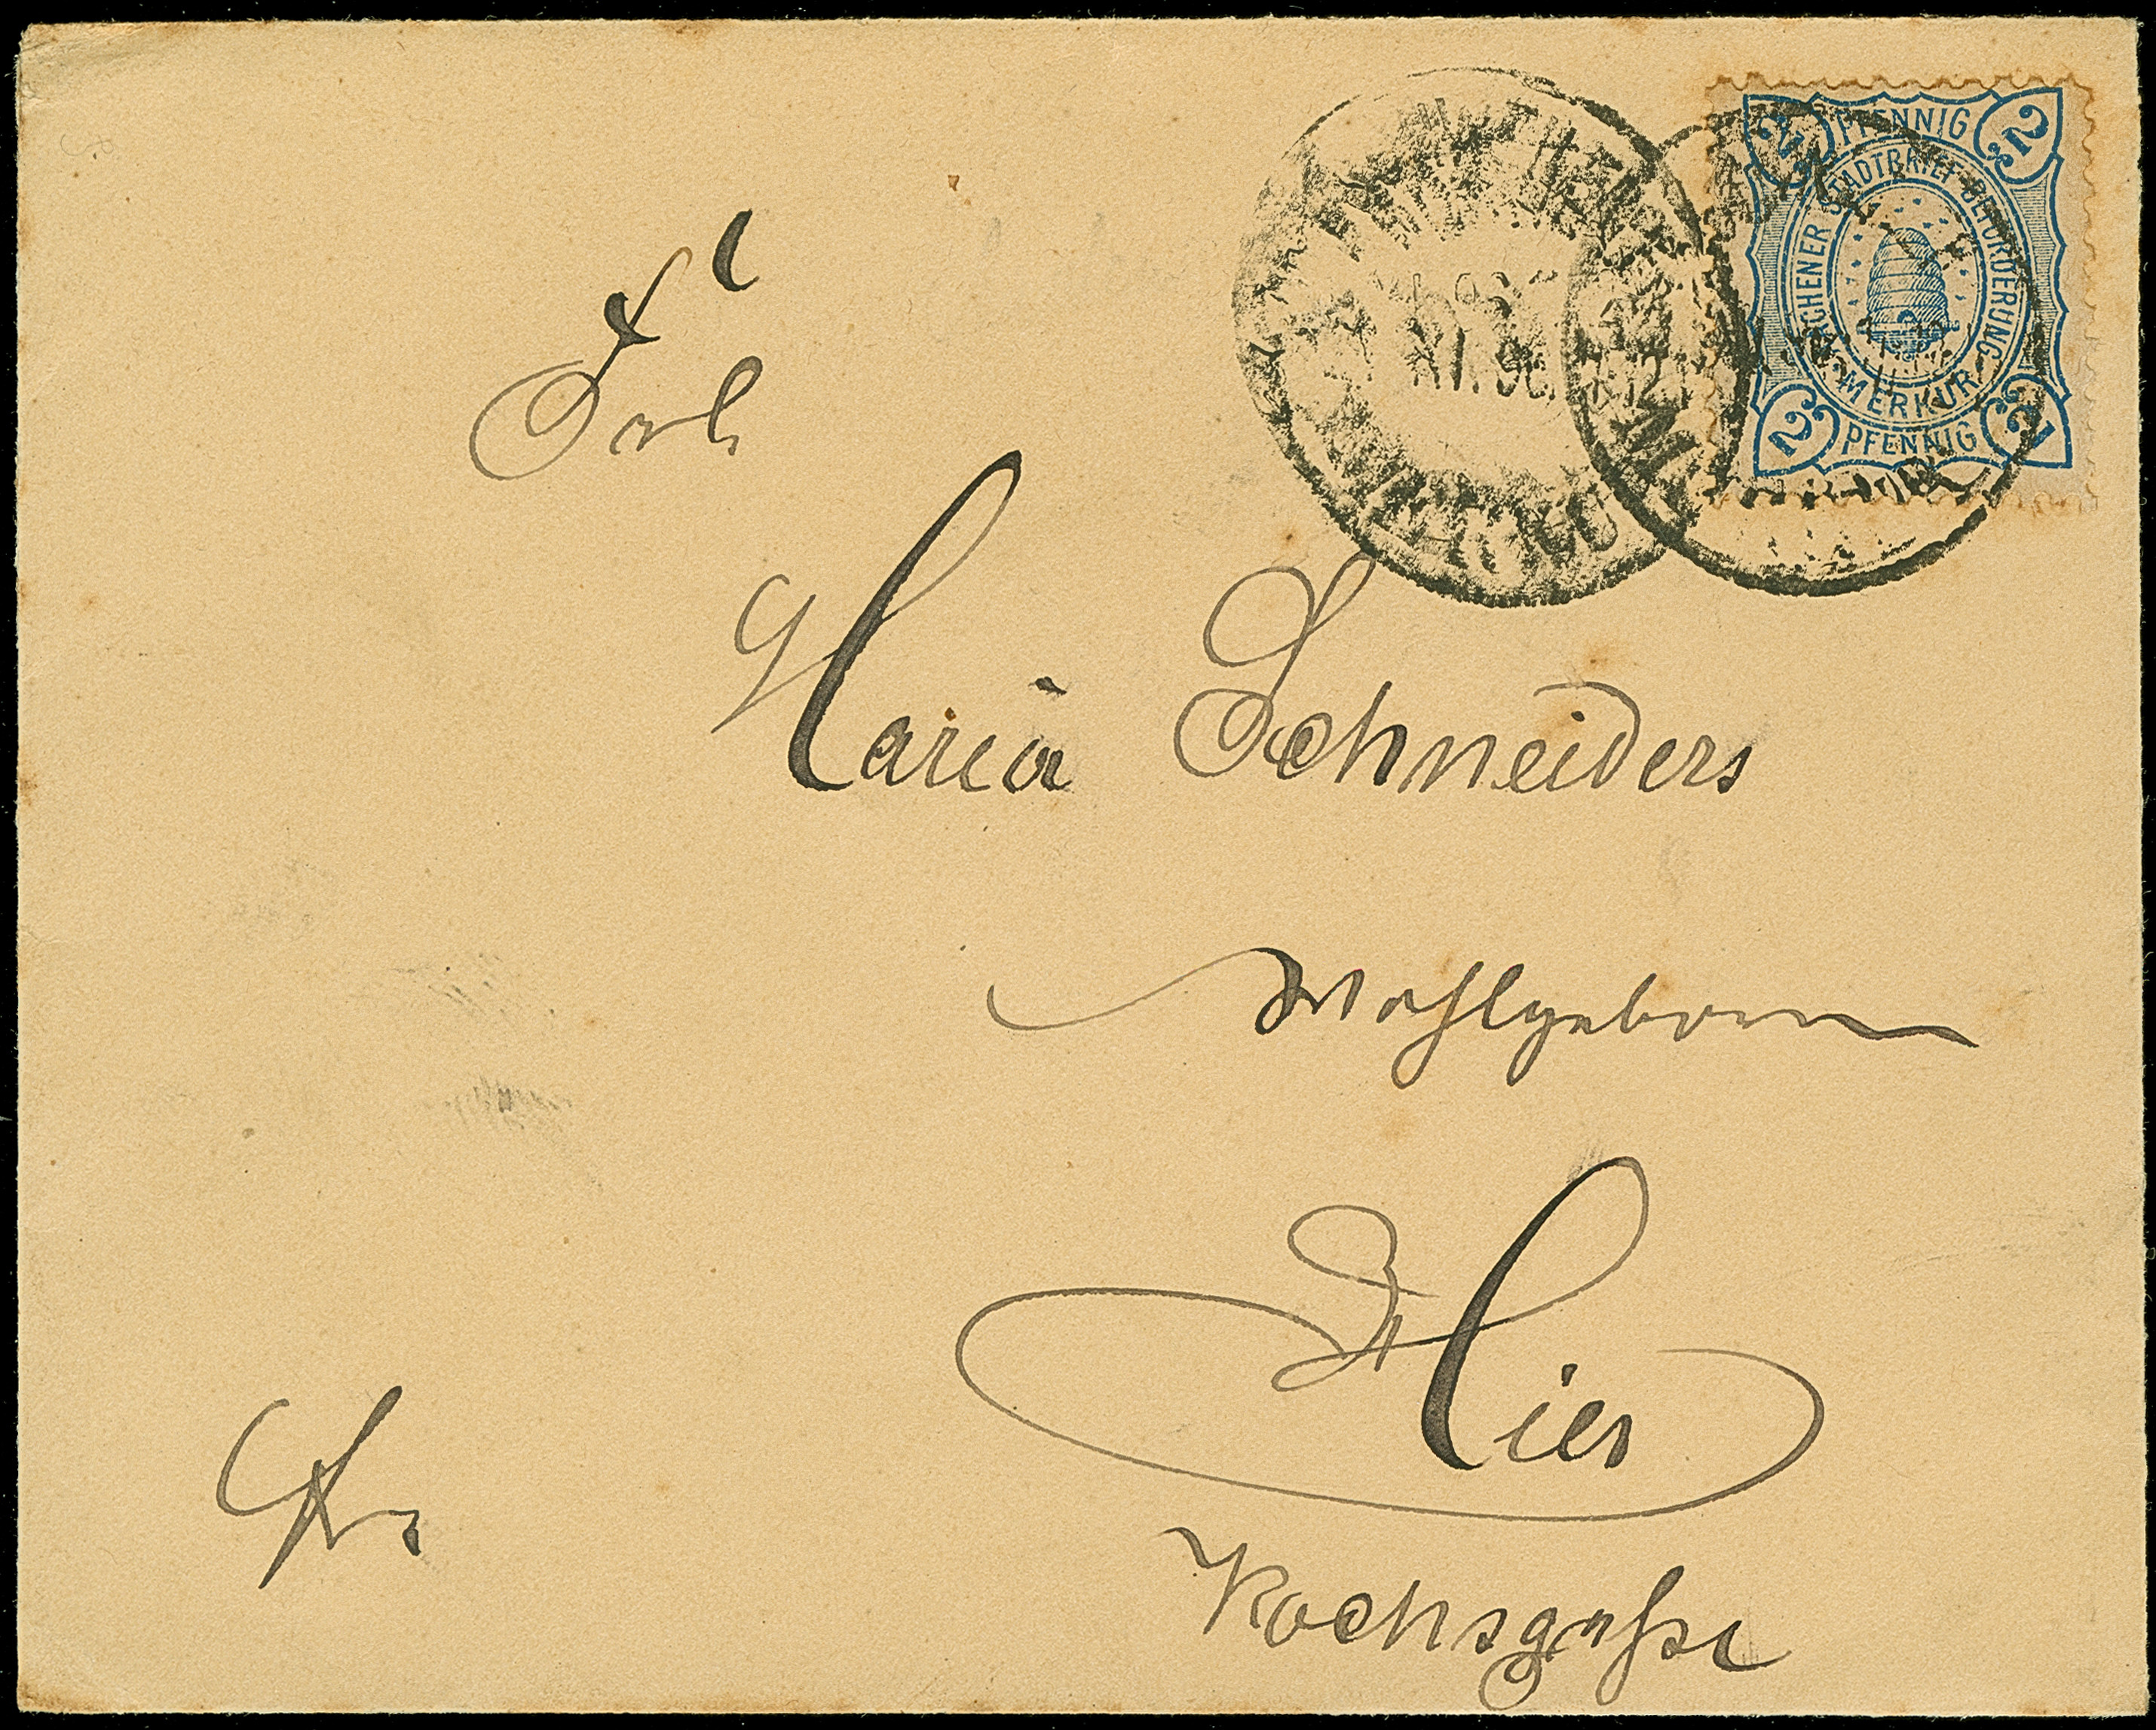 2 PFENNIG 2
AACHENER STADTBRIEF-BEFÖRDERUNG
MERKUR
2 PFENNIG 2
Frl.
Maria Schneiders
Wohlgeboren
Hier
Kochsgasse